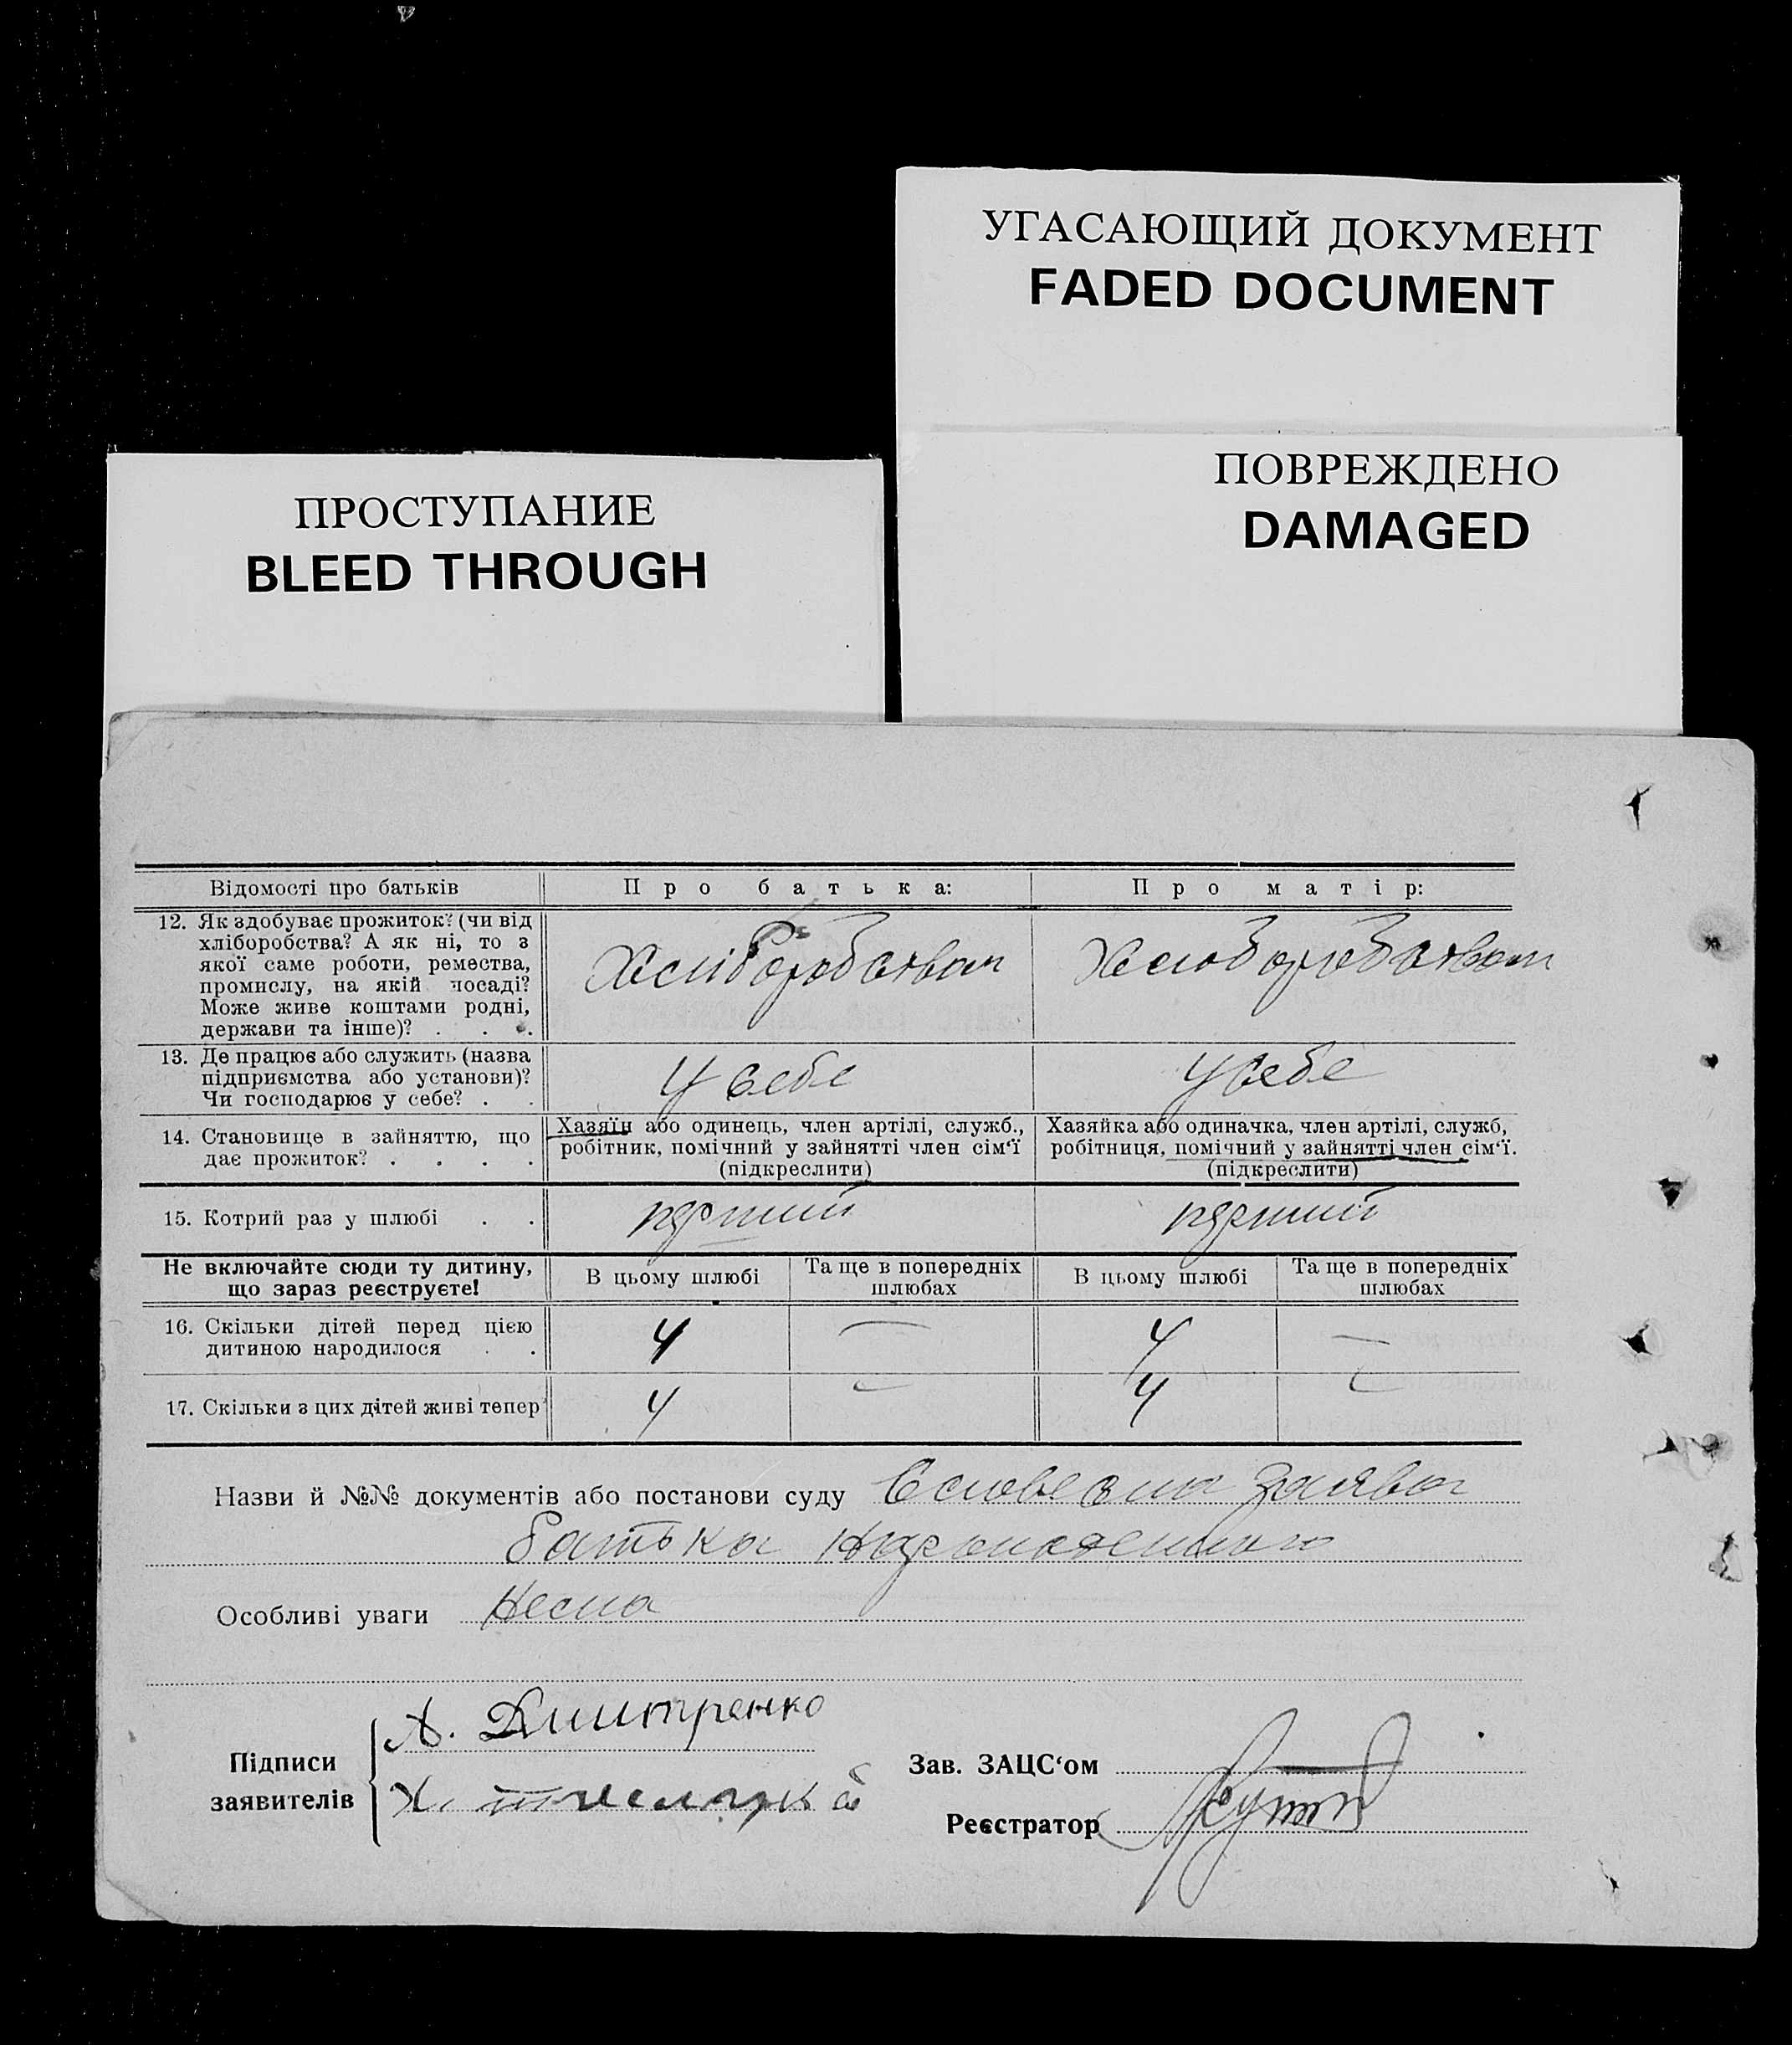 УГАСАЮЩИЙ ДОКУМЕНТ
FADED DOCUMENT
ПОВРЕЖДЕНО
DAMAGED
ПРОСТУПАНИЕ
BLEED THROUGH
Відомості про батьків Про батька: Про матір:
12. Як здобуває прожиток? (чи від
хліборобства? А як ні, то з
якої саме роботи, ремества,
промислу, на якій посаді?
Може живе коштами родні,
держави та інше)? . . .
Хліборобством Хлиборобством
13. Де працює або служить (назва
підприємства або установи)?
Чи господарює у себе? . .
У себе У себе
14. Становище в зайняттю, що
дає прожиток? . . . .
Хазяїн або одинець, член артілі, служб.,
робітник, помічний у зайнятті член сім'ї
(підкреслити)
Хазяйка або одиначка, член артілі, служб,
робітниця, помічний у зайнятті член сім'ї.
(підкреслити)
15. Котрий раз у шлюбі . . перший перший
Не включайте сюди ту дитину,
що зараз реєструєте!
В цьому шлюбі Та ще в попередніх
шлюбах
В цьому шлюбі Та ще в попередніх
шлюбах
16. Скільки дітей перед цією
дитиною народилося . .
4 — 4 —
17. Скільки з цих дітей живі тепер 4 — 4 —
Назви й №№ документів або постанови суду Словесна заява
батька
Особливі уваги Нема
Підписи
заявителів
А. Дмитренко
Х.
Зав. ЗАЦС'ом
Реєстратор